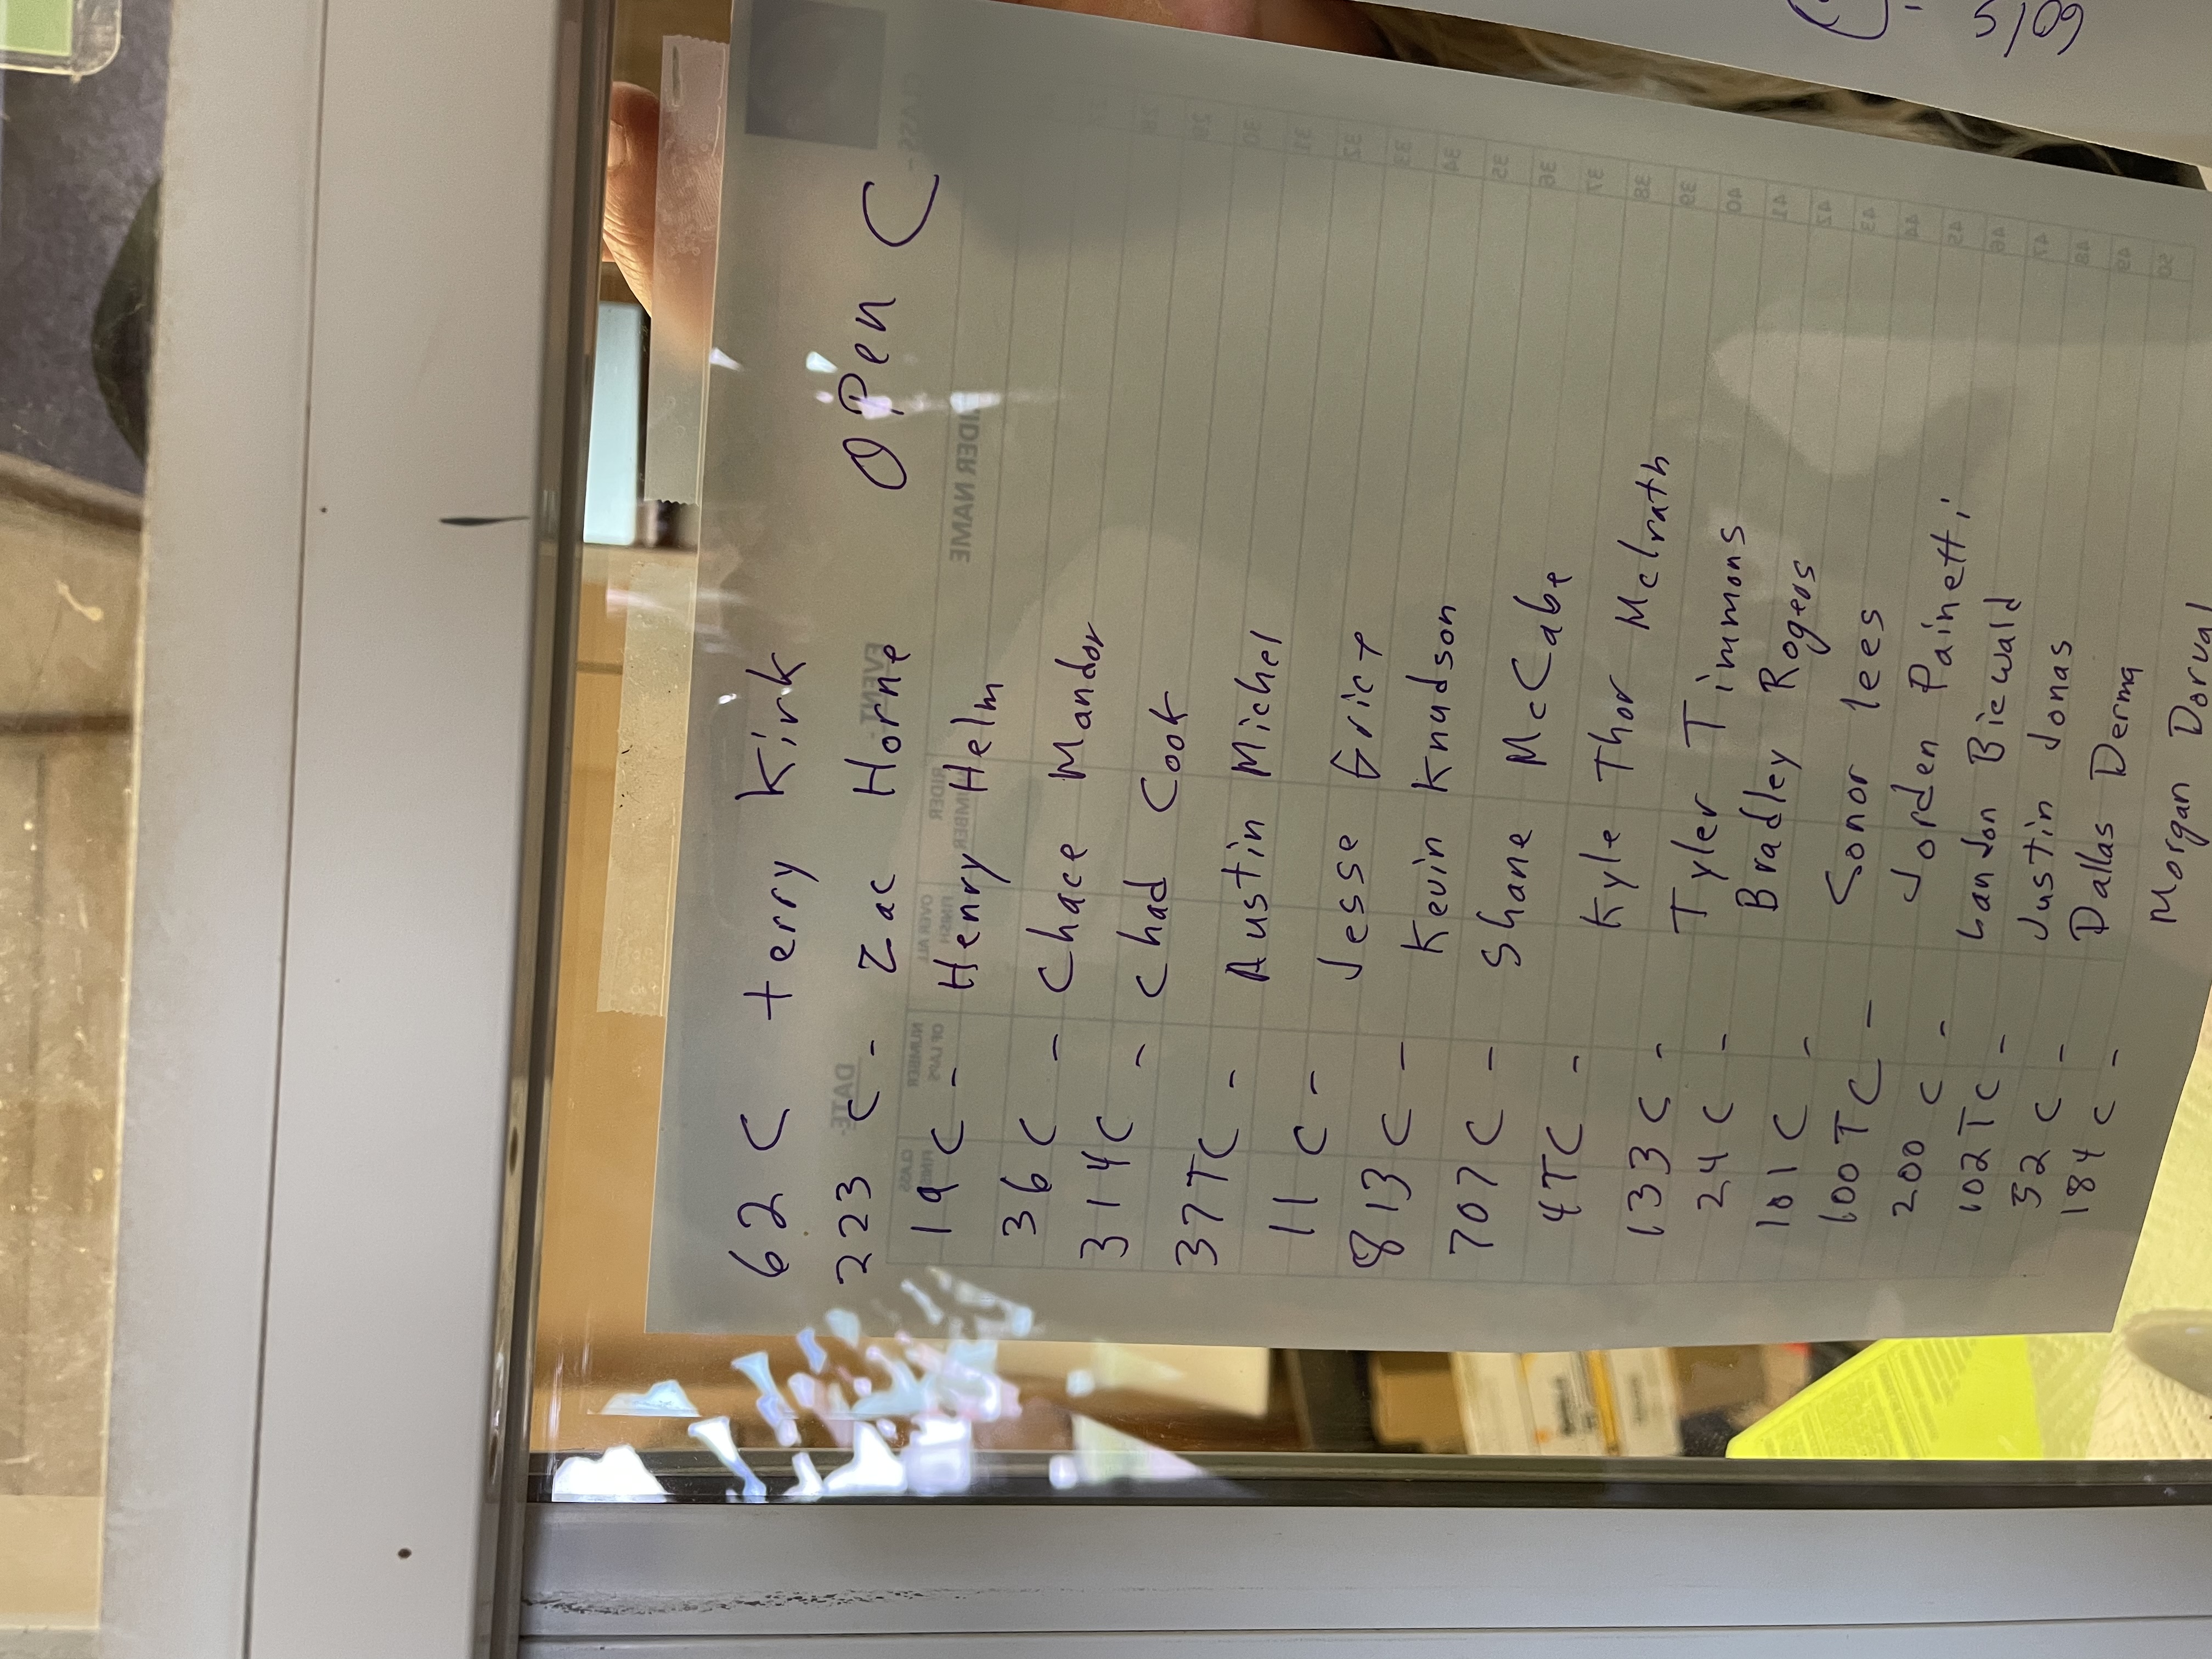 Open C
62 C terry Kirk
223 C - Zac Horne
19 C - Henry Helm
36 C - Chace Mandor
314C - Chad Cook
37TC - Austin Michel
11 C - Jesse Grice
813 C - Kevin Knudson
707 C - Shane McCabe
4TC - Kyle Thor Mclrath
133 C - Tyler Timmons
24 C - Bradley Rogers
101 C - Conor lees
100TC - Jorden Painetti
200 C - Landon Biewald
102TC - Justin Jonas
52 C - Dallas Derma
184 C - Morgan Dorval
RIDER NAME
EVENT-
DATE-
CLASS -
RIDER
NUMBER
OVER ALL
FINISH
NUMBER
OF LAPS
CLASS
28
29
30
31
32
33
34
35
36
37
38
39
40
41
42
43
44
45
46
47
48
49
50
5/09